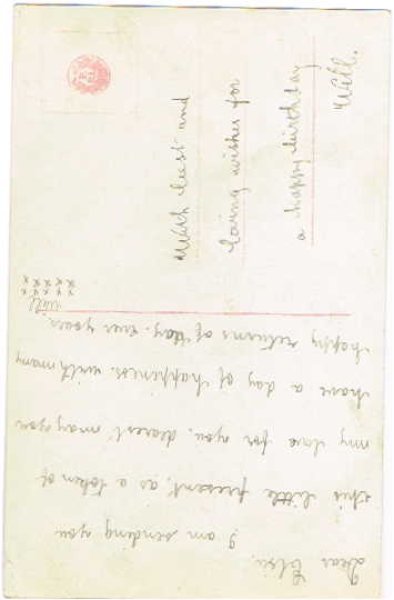 Dear Elsie.
I am sending you
this little present, as a token of
my love for you, dearest may you
have a day of happiness. with many
happy returns of day. ever yours.
Will
x x x x x
x x x x x
With best and
loving wishes for
a happy birthday
Will.